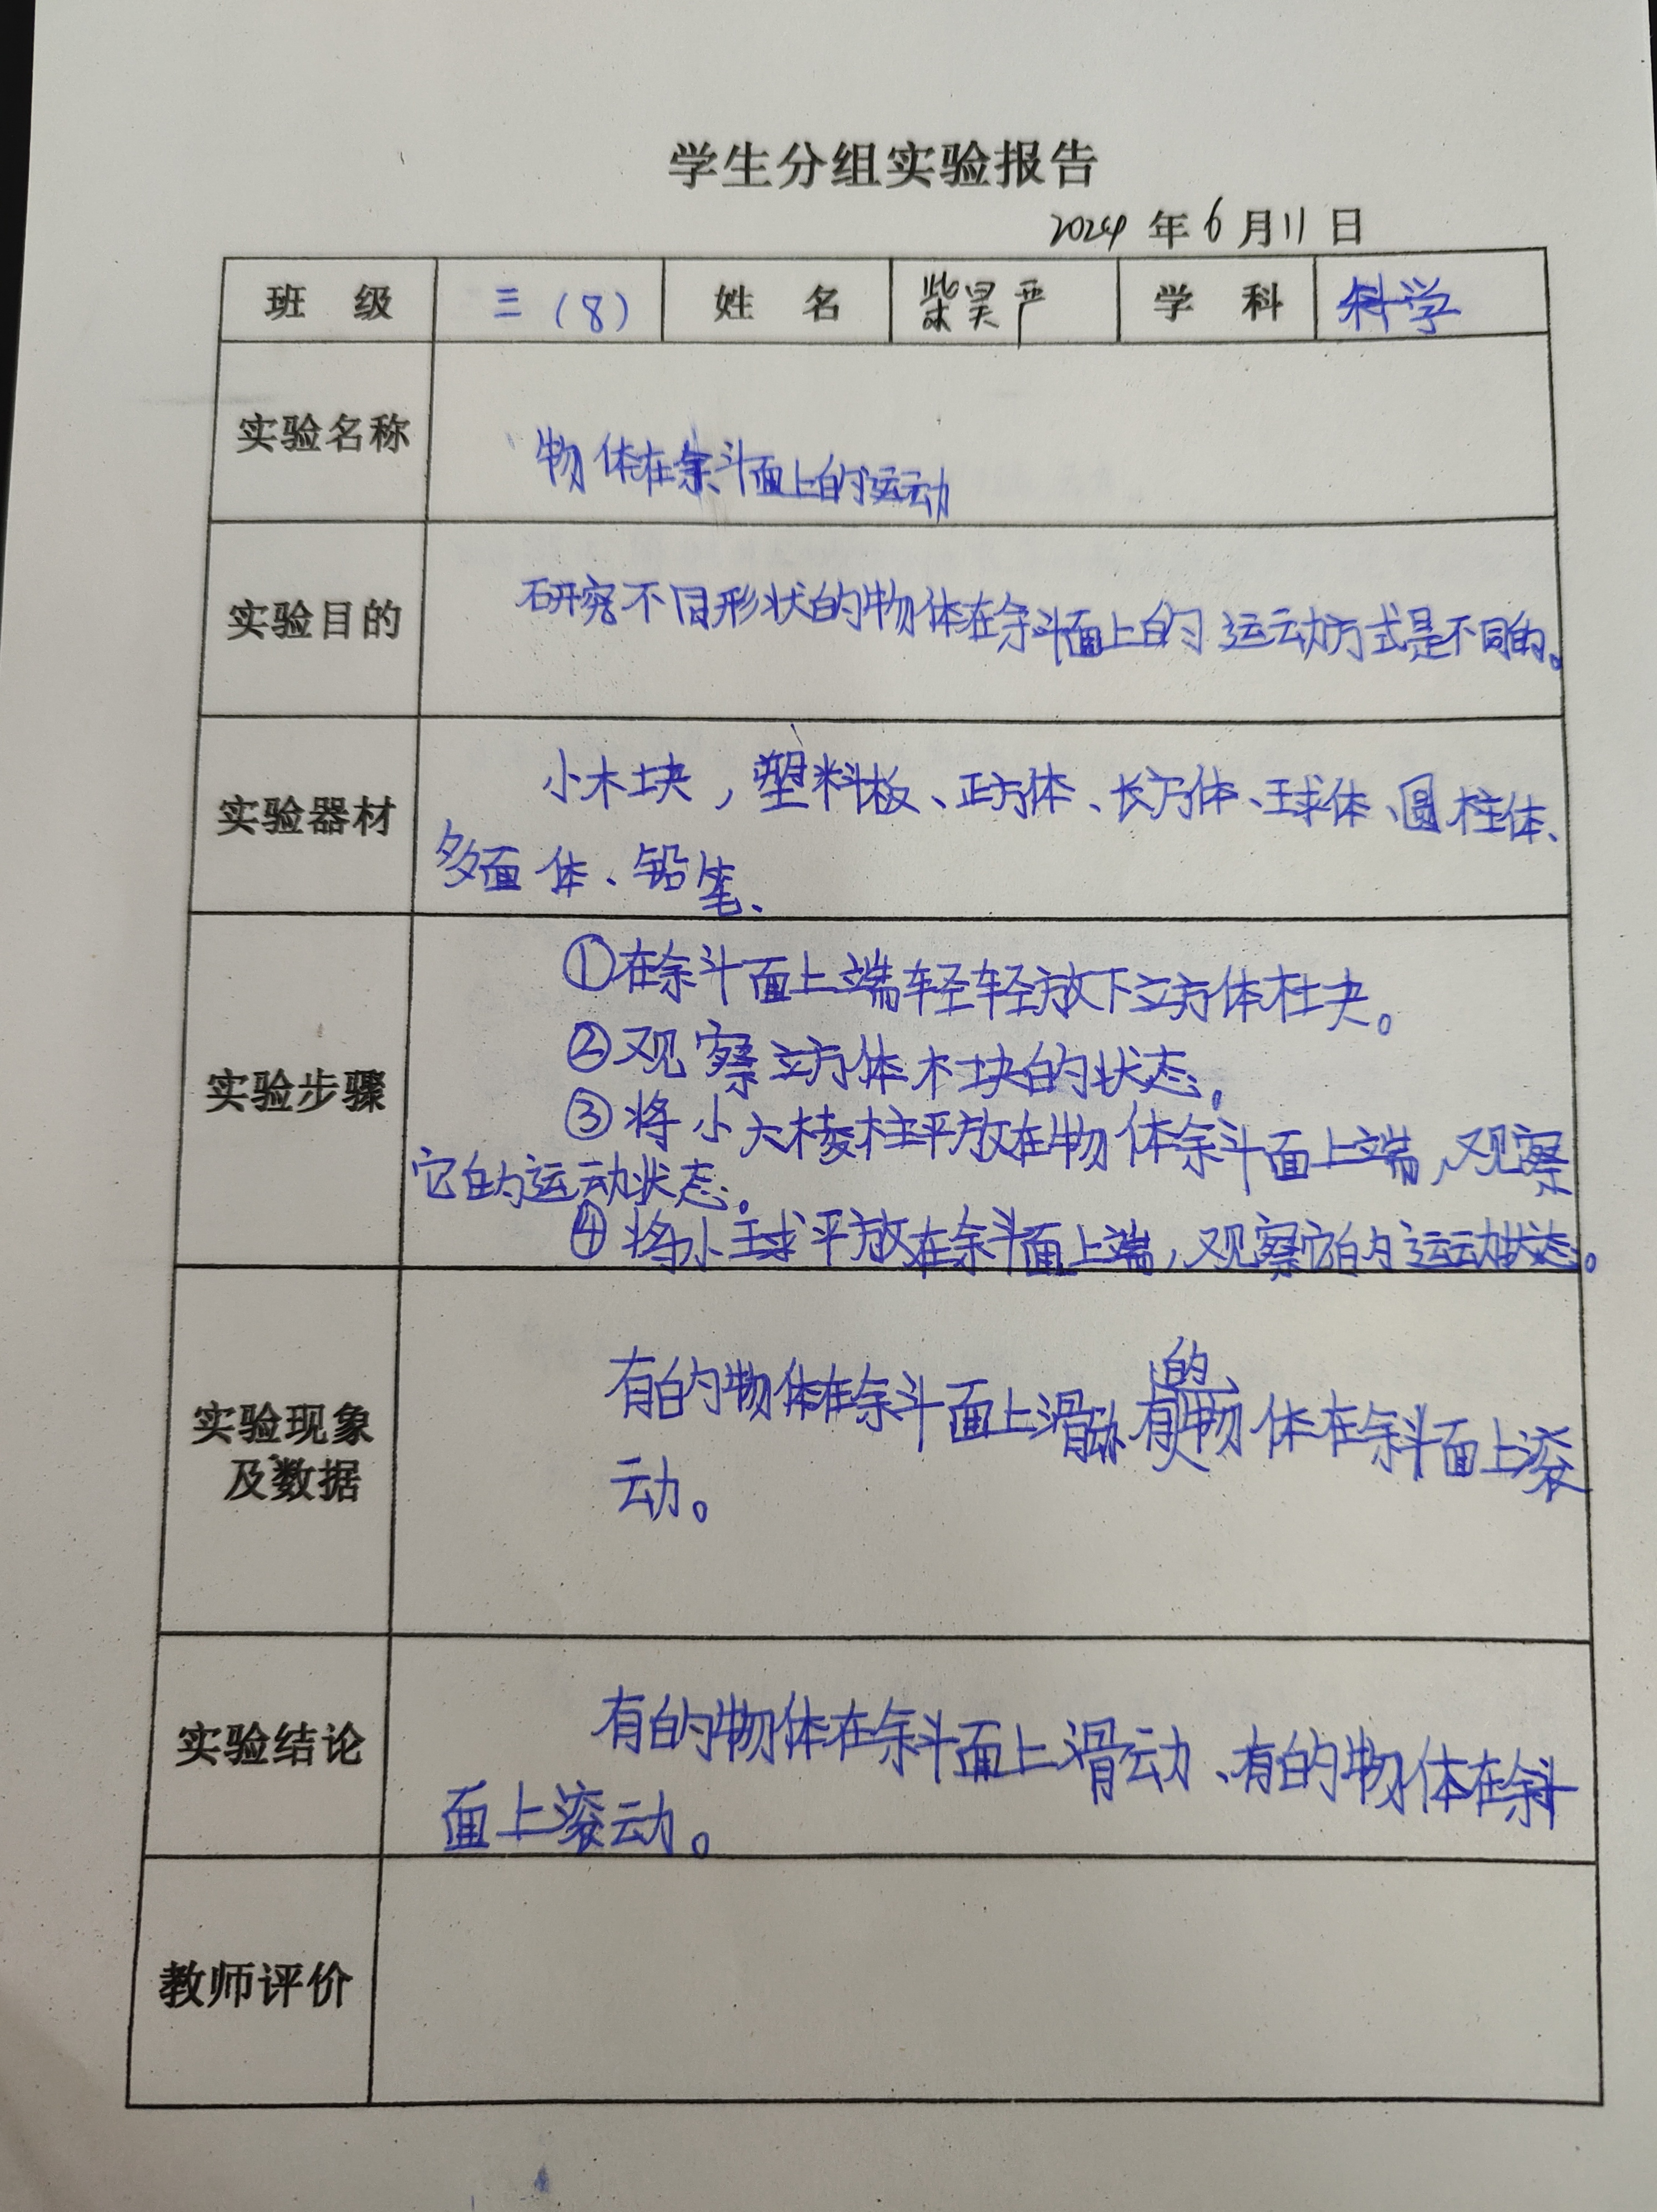 学生分组实验报告
2024 年 6 月 11 日
班 级 三（8） 姓 名 柴昊严 学 科 科学
实验名称 物体在斜面上的运动
实验目的 研究不同形状的物体在斜面上的运动方式是不同的。
实验器材 小木块，塑料板、正方体、长方体、球体、圆柱体、
多面体、铅笔、
实验步骤 ①在斜面上端轻轻放下立方体木块。
②观察立方体木块的状态。
③将小六棱柱平放在物体斜面上端，观察
它的运动状态。
④将小球平放在斜面上端，观察它的运动状态。
实验现象
及数据
有的物体在斜面上滑动 有的物体在斜面上滚
动。
实验结论 有的物体在斜面上滑动、有的物体在斜
面上滚动。
教师评价